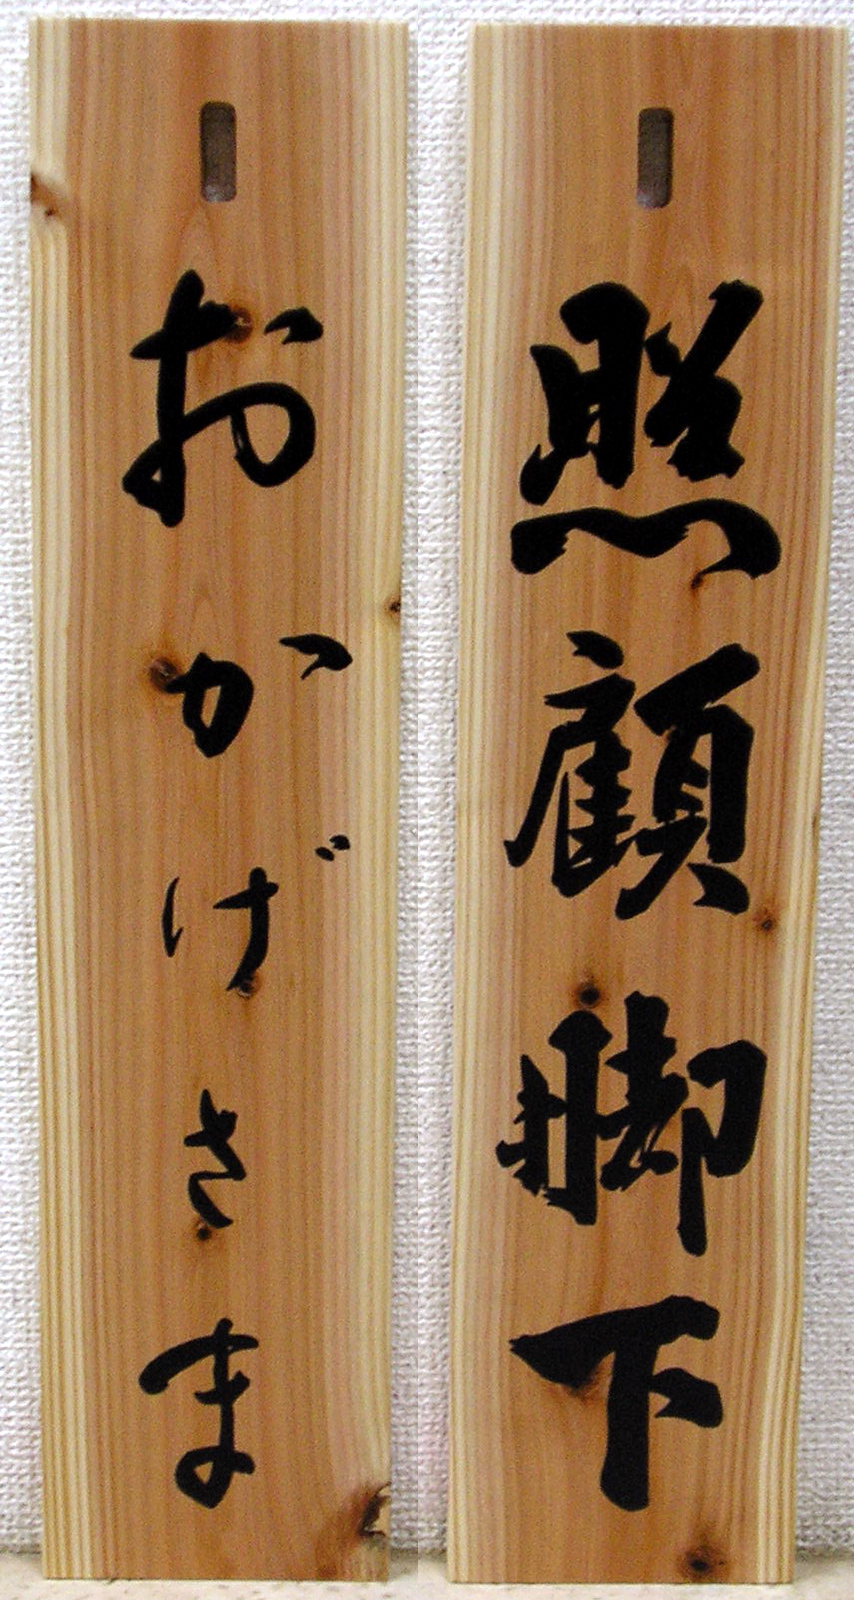 照顧脚下
おかげさま